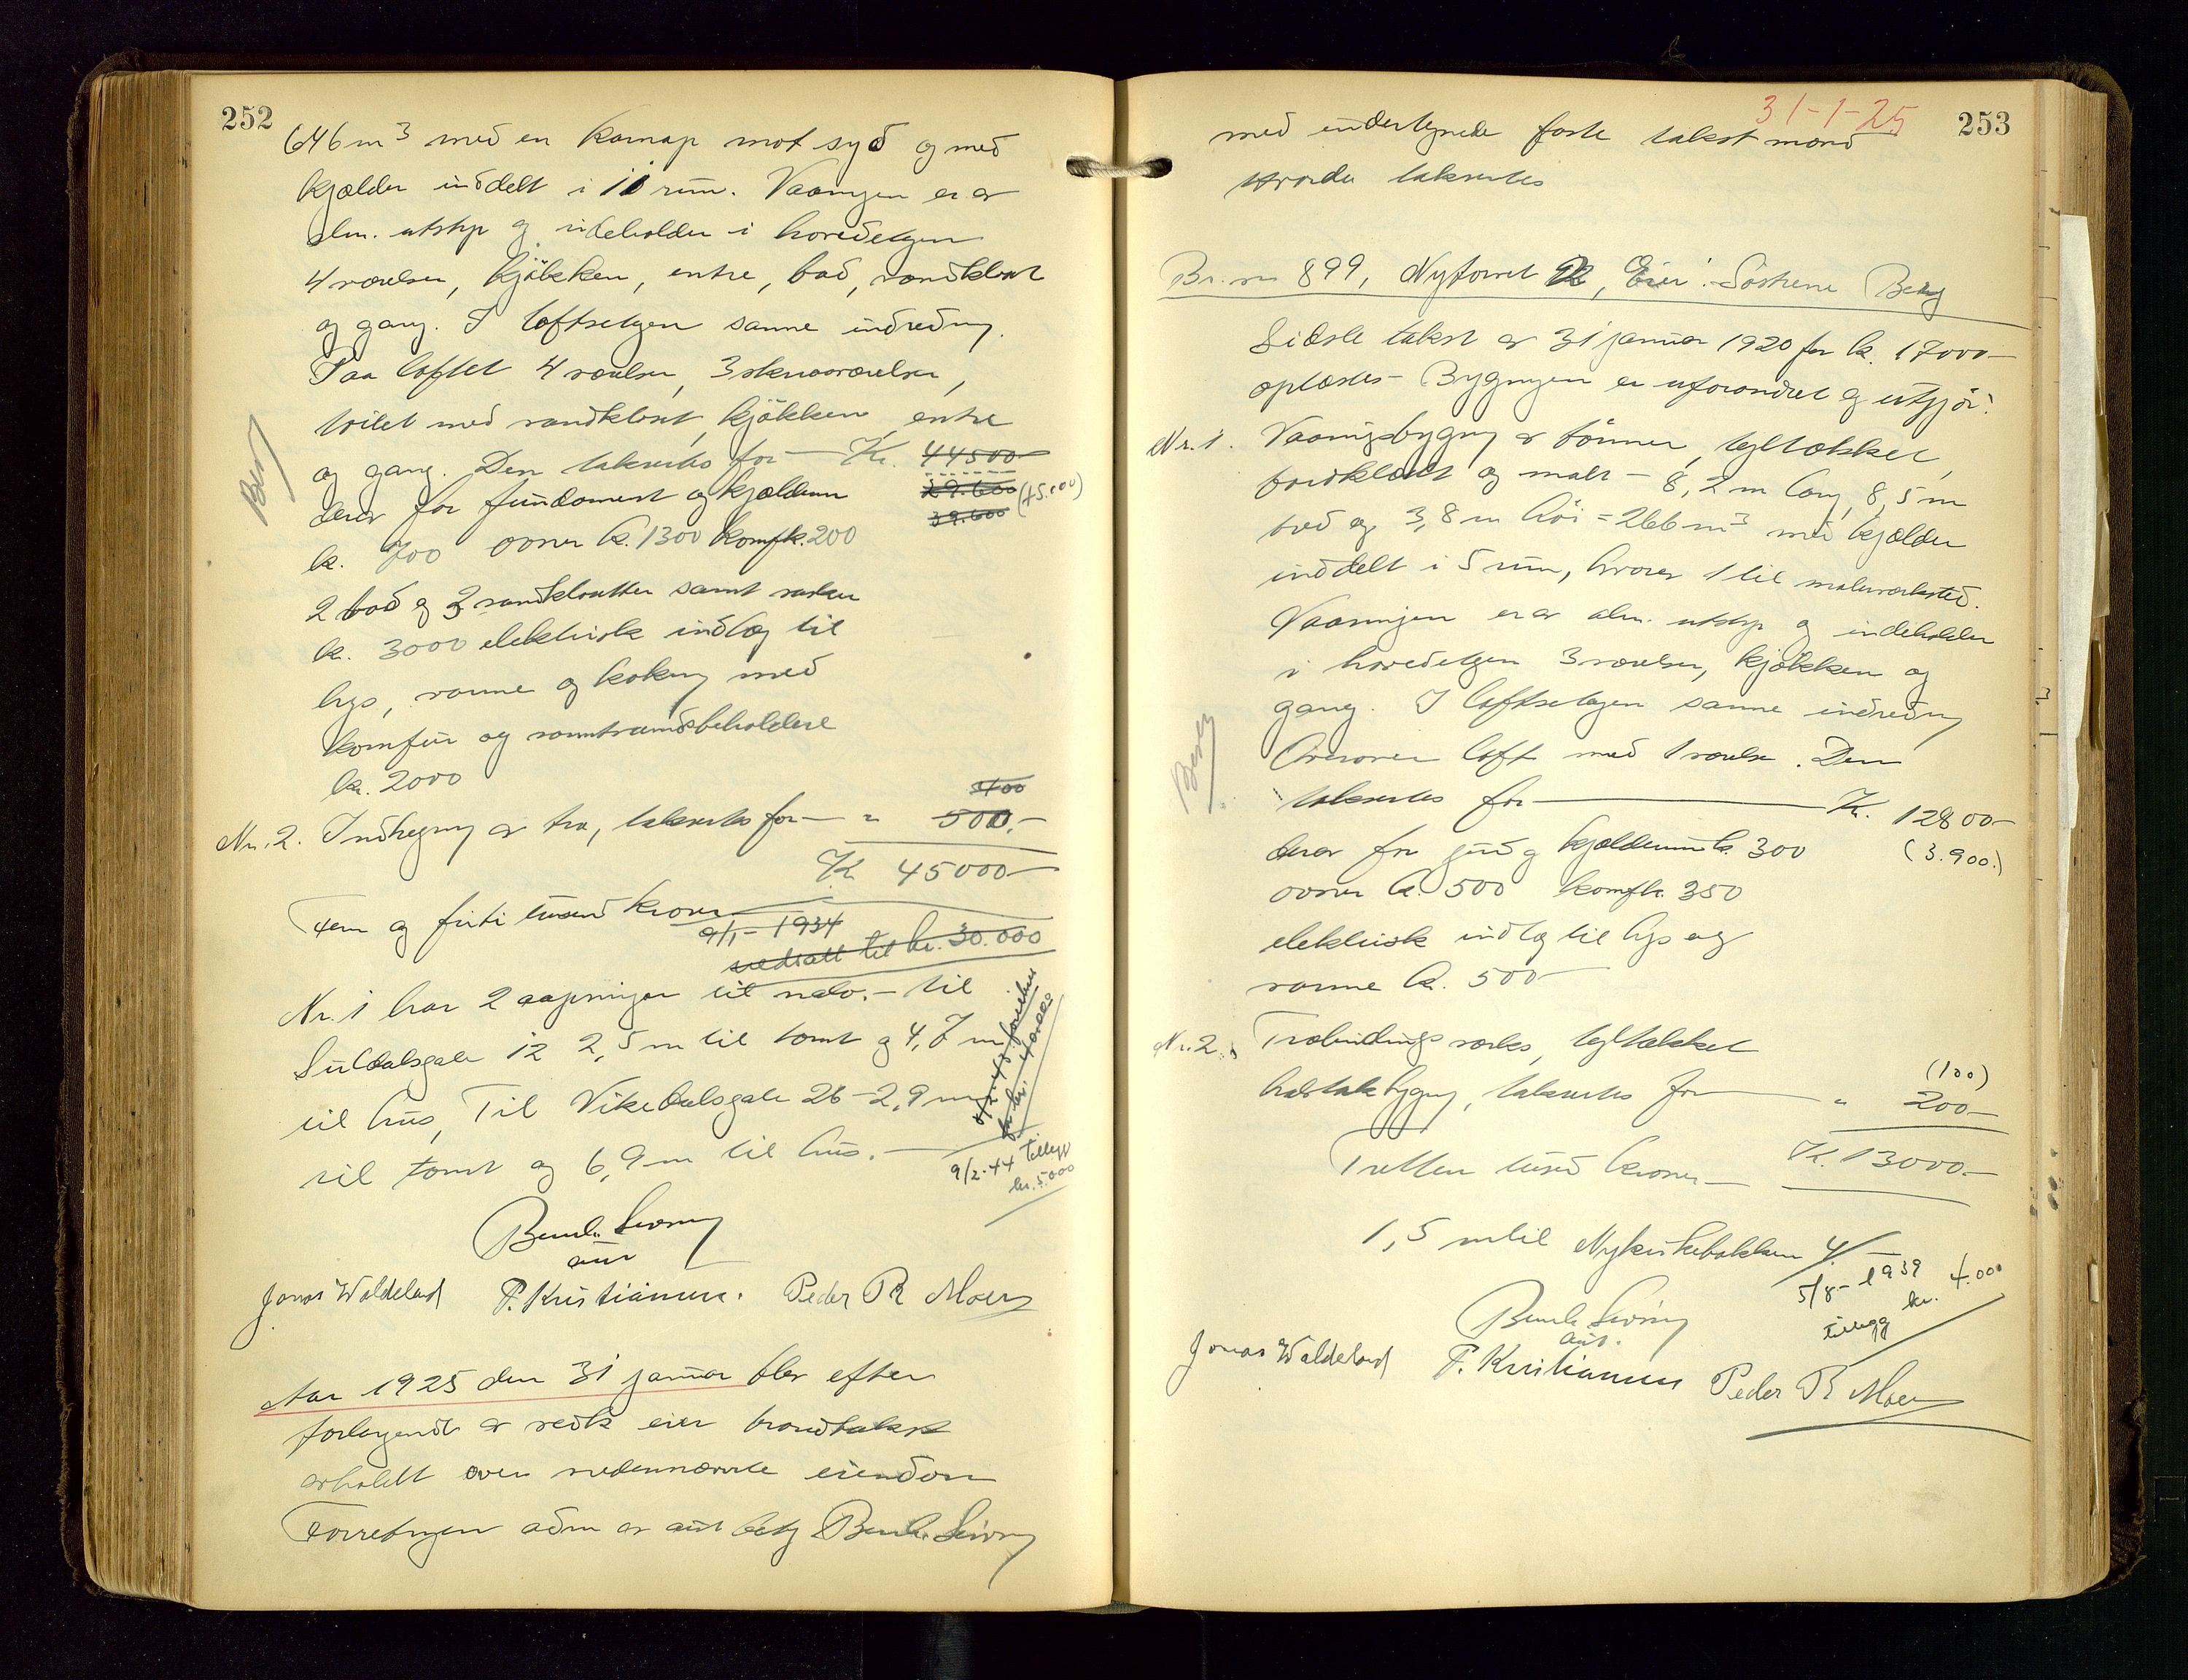 252
646 m³ med en karnap mot syd og med
kjælder inddelt i 11 rum. Vaaningen er av
alm. utstyr og indeholder i hovedetagen
4 værelser, kjøkken, entre, bad, vandklosæt
og gang. I loftsetagen samme indredning.
Paa loftet 4 værelser, 3 skraaværelser,
toilet med vandklosæt, kjøkken, entre
og gang. Den takseres for — Kr. 44500—
derav for fundament og kjælderrum 29.600 (45.000)
kr. 700 ovner kr. 1300 komf. kr. 200 39.600
2 bad og 3 vandklosetter samt vasker
kr. 3000 elektrisk indlæg til
lys, varme og kokning med
komfur og varmtvandsbeholdere
kr. 2000
400
Nr. 2. Indhegning av træ, takseres for — " 500.—
Kr 45000—
Fem og firti tusend kroner
9/1 - 1934
nedsatt til kr. 30.000
Nr. 1 har 2 aapninger til nabo. — til
Suldalsgate 12 2,5 m til tomt og 4,7 m
til hus, Til Vikedalsgate 26 — 2,9 m
til tomt og 6,9 m til hus. —
9/2-44 tillegg
kr. 5.000
Berg
Jonas Waldeland P. Kristiansen. Peder R Moen
Aar 1925 den 31 januar blev efter
forlangende av vedk eier brandtakst
avholdt over nedennævnte eiendom
Forretningen adm av aut betj
253
31-1-25
med undertegnede faste takstmænd
Hvorda takseres
Br. nr 899, Nytorvet, Eier: Søstrene Berg
Sidste takst av 31 januar 1920 for kr. 17000—
oplæstes — Bygningen er uforandret og utgjør:
Nr. 1. Vaaningsbygning av tømmer, tegltækket,
bordklædt og malt — 8,2 m lang, 8,5 m
bred og 3,8 m høi = 266 m³ med kjælder
inddelt i 5 rum, hvorav 1 til malerværksted.
Vaaningen er av alm. utstyr og indeholder
i hovedetagen 3 værelser, kjøkken og
gang. I loftsetagen samme indredning
Ovenover loft med 1 værelse. Den
takseres for — Kr. 12800—
derav for gr. og kjælderrum kr. 300 (3.900.)
ovner kr. 500 komf kr. 350
elektrisk indlæg til lys og
varme kr. 500—
Nr. 2. Træbindingsværks, tegltækket
(100)
halvtaksbygning, takseres for — " 200—
Tretten tusend kroner — Kr. 13000.—
1,5 m til Nykirkebakken 4/—
5/8-1939
tillegg kr. 4.000
Berg
Jonas Waldeland P. Kristiansen Peder R Moen